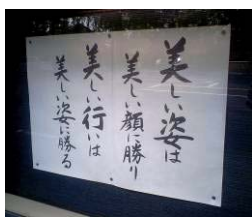 美しい姿は
美しい顔に勝り
美しい行いは
美しい姿に勝る